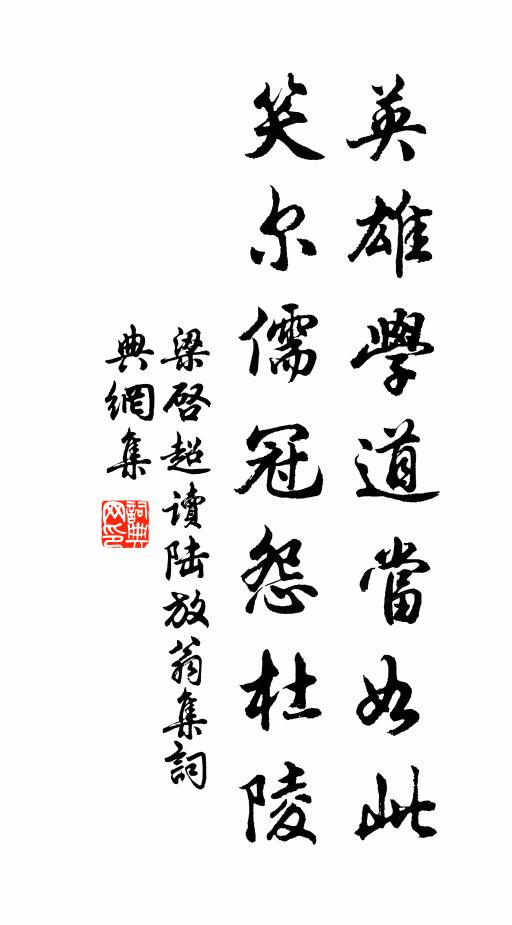 英雄學道當如此
笑尔儒冠怨杜陵
梁啓超读陆放翁集詞
典網集
詞典网印